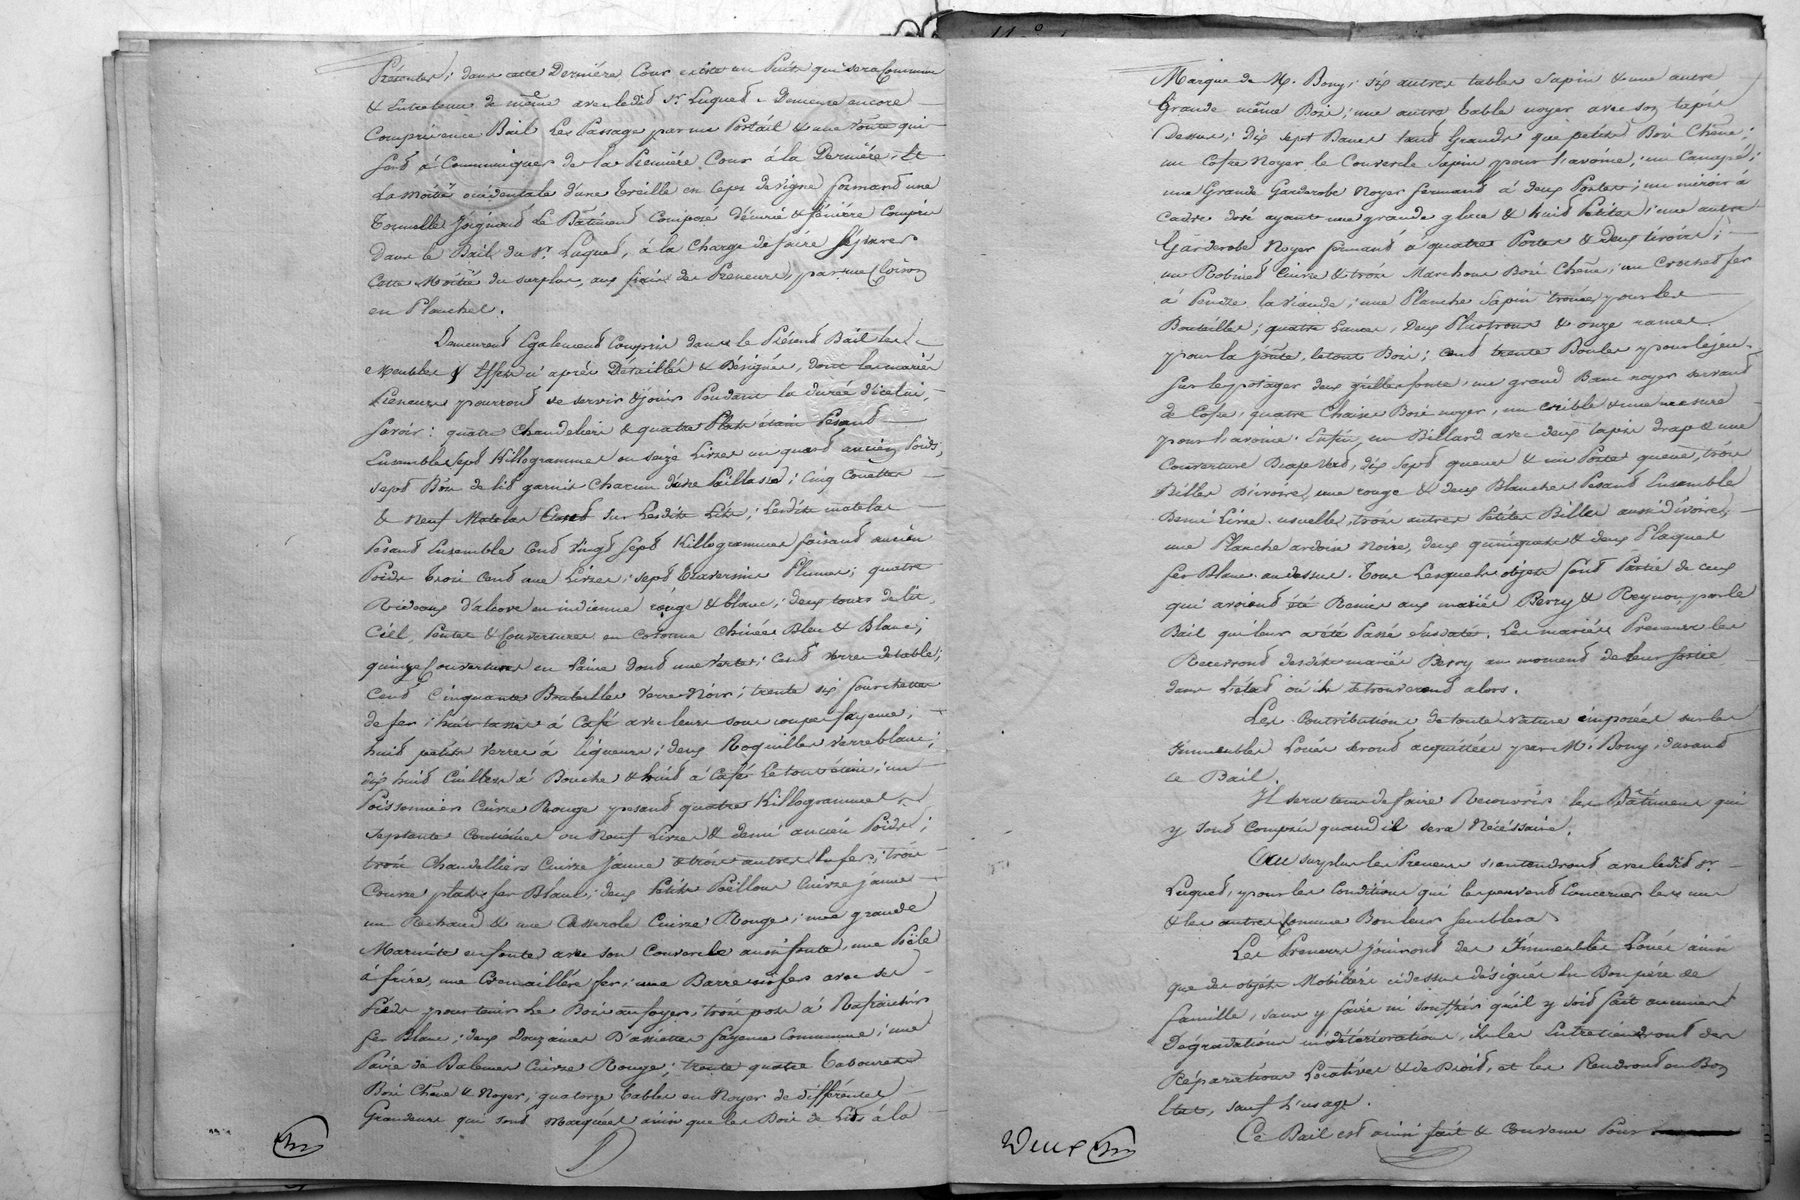 Présentes; dans cette Dernière Cour existe un Puits qui sera Commun
& Entretenu de même avec ledit Sr. Luquet. Demeure encore
Compris en ce Bail Les Passage par un Portail & une voûte qui
sert à Communiquer de la Première Cour à la Dernière, Et
La moitié occidentale d'une Treille en Ceps de vigne formant une
Tonnelle Joignant Le Bâtiment Composé d'écurie & fenière Compris
Dans le Bail du Sr. Luquet, à la Charge de faire séparer
Cette Moitié du surplus, aux frais des Preneurs, par une Cloison
en Planches.
Demeurent Egalement Compris dans le Présent Bail les
Meubles & Effets ci après Détaillés & Désignés, dont les mariés
Preneurs pourront se servir & jouir Pendant la durée d'icelui,
Savoir: quatre Chandeliers & quatre Plats étain Pesant
Ensemble Sept Killogrammes ou seize Livres un quart ancien Poids,
sept Bois de lit garnis Chacun d'une Paillasse; Cinq Couettes
& Neuf Matelas sur Lesdits Lits; Lesdits matelas
Pesant Ensemble Cent Vingt Sept Killogrammes faisant ancien
Poids Trois Cent une Livres; sept Traversins Plumes; quatre
Rideaux d'alcove en indienne rouge & blanc; deux tours de lit
Ciel, Pentes & Couvertures en Cotonne Chinée Bleu & Blanc;
quinze Couvertures en Laine dont une verte; Cent verres de table;
Cent Cinquante Bouteilles verre Noir; trente six fourchettes
de fer; huit tasses à Café avec leurs sous coupes fayence;
huit petits Verres à liqueurs; deux Roquilles verre blanc;
dix huit Cuillers à Bouche & huit à Café Le tout étain; un
Poissonnier Cuivre Rouge pesant quatre Killogrammes
septante Centièmes ou Neuf Livres & demi ancien Poids;
trois Chandelliers Cuivre Jaune & trois autres En fer; trois
Couvre plats fer Blanc; deux Petits Poëllons Cuivre jaune
un Rechaud & une Casserole Cuivre Rouge; une grande
Marmite en fonte avec son Couvercle aussi fonte, une Poële
à frire, une Cremaillère fer; une Barre en fer avec ses
Pieds pour tenir Le Bois au foyer; trois pots à Rafraichir
fer Blanc; deux Douzaines D'assiettes fayence Commune; une
Paire de Balances Cuivre Rouge; trente quatre Tabourets
Bois Chêne & Noyer, quatorze tables en Noyer de différentes
Grandeurs qui sont marquées ainsi que les Bois de Lits à la
Marque de M. Bony; six autres tables Sapin & une autre
Grande même Bois; une autre Table noyer avec son tapis
Dessus; dix sept Bancs tant Grands que petits Bois Chêne;
un Cofre Noyer le Couvercle Sapin pour l'avoine; un Canapé;
une Grande Garderobe Noyer fermant à deux Portes; un miroir à
Cadre doré ayant une grande glace & huit Petites; une autre
Garderobe Noyer fermant à quatre Portes & Deux tiroirs;
un Robinet Cuivre & trois Marchons Bois Chêne; un Crochet fer
à Pendre la viande; une Planche Sapin trouée pour les
Bouteilles; quatre Lances, Deux Plastrons & onze rames
pour la joûte, le tout Bois; Cent trente Boules pour le jeu.
Sur le potager deux grilles fonte, un grand Banc noyer servant
de Cofre, quatre Chaises Bois noyer, un Crible & une mesure
pour l'avoine. Enfin, un Billard avec deux tapis drap & une
Couverture Drap Verd, dix sept queues & un Porte queues, trois
Billes D'ivoire, une rouge & deux Blanches Pesant Ensemble
Demi Livre usuelle, trois autres Petites Billes aussi d'ivoire,
une Planche ardoise Noire, deux quinquets & deux Plaques
fer Blanc au dessus. Tous Lesquels objets font Partie de ceux
qui avoient été Remis aux mariés Berry & Reynon, par le
Bail qui leur a été Passé susdaté. Les mariés Preneurs les
Recevront desdits mariés Berry au moment de leur sortie
dans l'état où ils se trouveront alors.
Les Contributions de toute Nature imposées sur les
Immeubles Loués seront acquittées par M. Bony, durant
ce Bail.
Il sera tenu de faire Recouvrir les Bâtiments qui
y sont Compris quand il sera Nécéssaire.
Au surplus les Preneurs s'entendront avec ledit Sr.
Luquet, pour les Conditions qui les peuvent Concerner les uns
& les autres Comme Bon leur semblera.
Les Preneurs Jouiront des Immeubles Loués ainsi
que des objets Mobiliers ci dessus désignés En Bon père de
famille, sans y faire ni souffrir qu'il y soit fait aucunes
Dégradations ni détériorations, ils les Entretiendront des
Réparations Locatives & de Droit, et les Rendront en Bon
Etat, sauf L'usage.
Ce Bail est ainsi fait & Convenu Pour
Deux